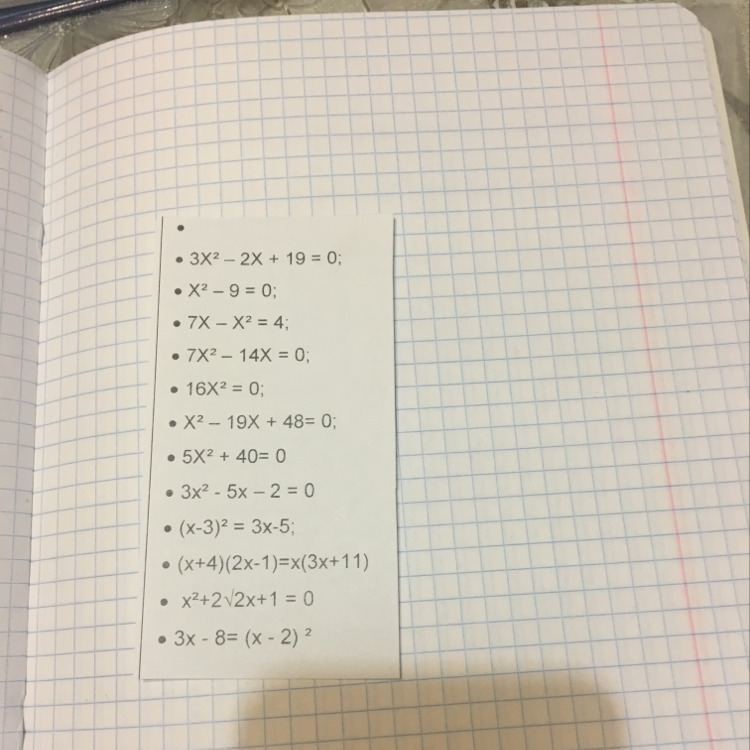 •
• 3X² – 2X + 19 = 0;
• X² – 9 = 0;
• 7X – X² = 4;
• 7X² – 14X = 0;
• 16X² = 0;
• X² – 19X + 48= 0;
• 5X² + 40= 0
• 3x² - 5x – 2 = 0
• (x-3)² = 3x-5;
• (x+4)(2x-1)=x(3x+11)
• x²+2√2x+1 = 0
• 3x - 8= (x - 2) ²